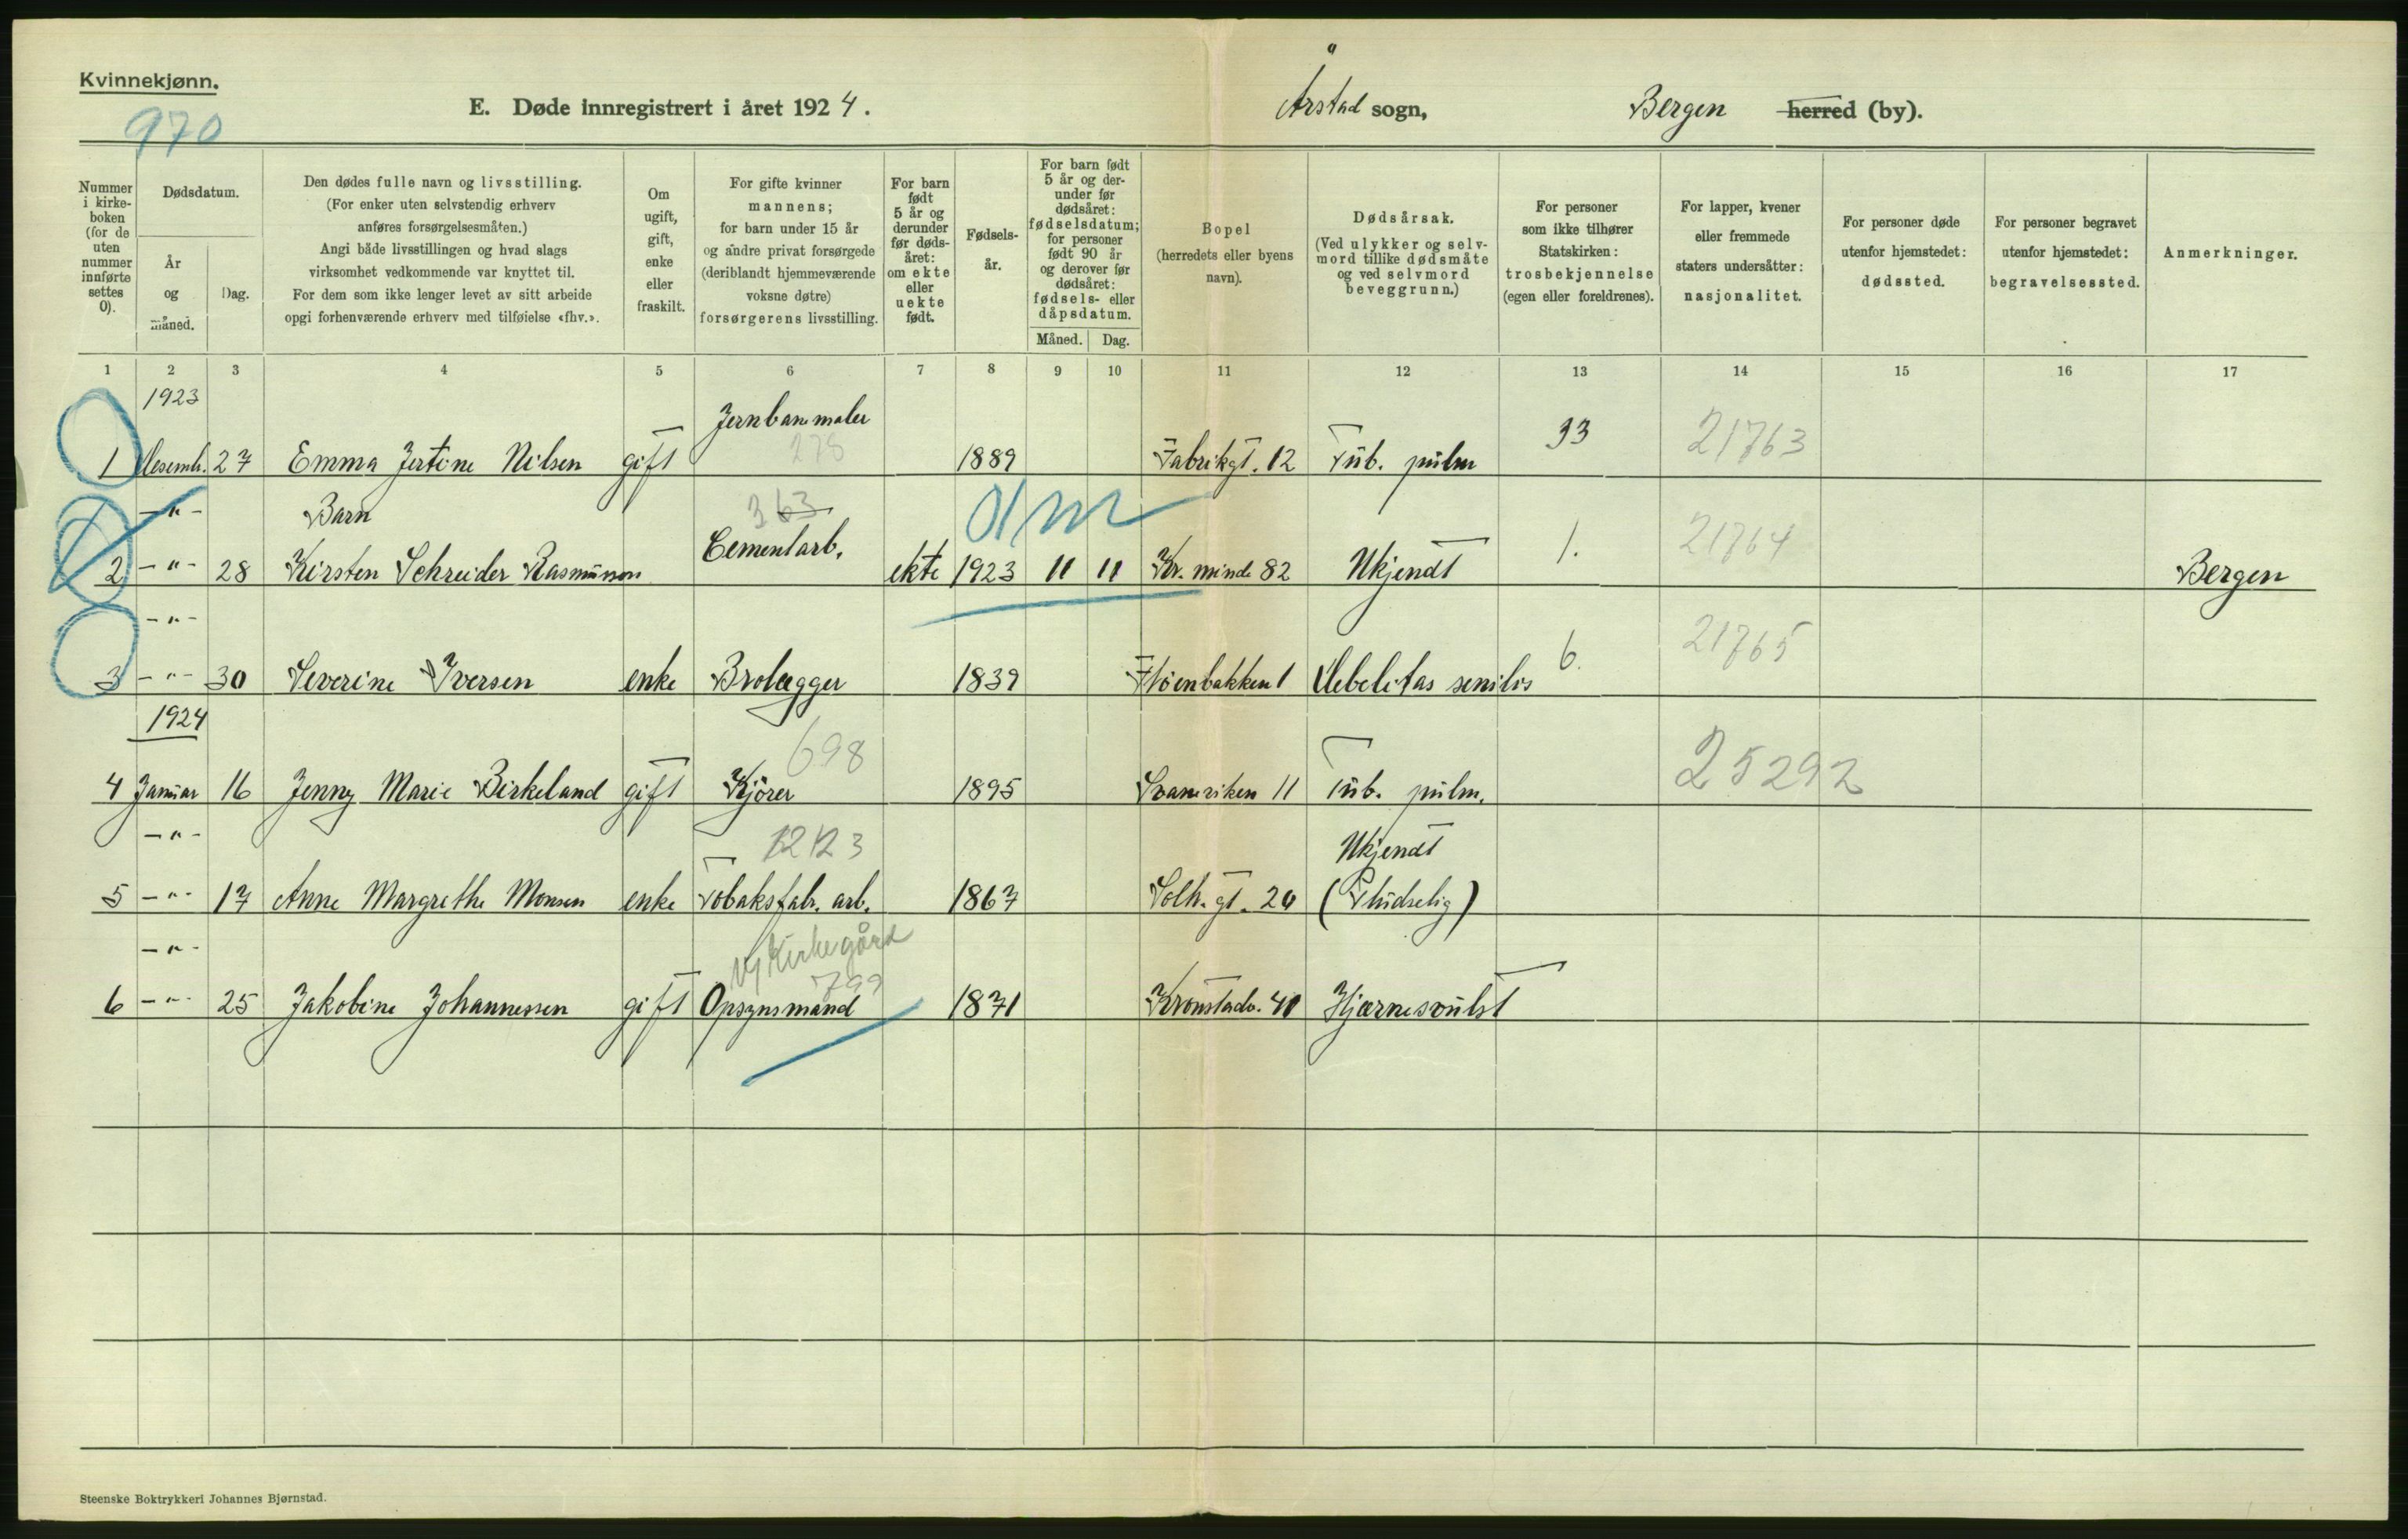 Kvinnekjønn.
970
E. Døde innregistrert i året 1924.
Årstad sogn,
Bergen herred (by).
Nummer i kirke-boken (for de uten nummer innførte settes 0).
Dødsdatum.
År og måned.
Dag.
Den dødes fulle navn og livsstilling.
(For enker uten selvstendig erhverv
anføres forsørgelsesmåten.)
Angi både livsstillingen og hvad slags
virksomhet vedkommende var knyttet til.
For dem som ikke lenger levet av sitt arbeide
opgi forhenværende erhverv med tilføielse «fhv.».
Om ugift, gift, enke eller fraskilt.
For gifte kvinner
mannens;
for barn under 15 år
og andre privat forsørgede
(deriblandt hjemmeværende
voksne døtre)
forsørgerens livsstilling.
For barn født 5 år og derunder før døds-året: om ekte eller uekte født.
Fødsels-år.
For barn født 5 år og der-under før dødsåret: fødselsdatum; for personer født 90 år og derover før dødsåret: fødsels- eller dåpsdatum.
Måned. Dag.
Bopel
(herredets eller byens
navn).
Dødsårsak.
(Ved ulykker og selv-
mord tillike dødsmåte
og ved selvmord
beveggrunn.)
For personer
som ikke tilhører
Statskirken:
trosbekjennelse
(egen eller foreldrenes).
For lapper, kvener
eller fremmede
staters undersåtter:
nasjonalitet.
For personer døde
utenfor hjemstedet:
dødssted.
For personer begravet
utenfor hjemstedet:
begravelsessted.
Anmerkninger.
1 2 3 4 5 6 7 8 9 10 11 12 13 14 15 16 17
1923
Jernbanemaler
278
1 Desemb. 27 Emma Jertine Nilsen gift 1889 Fabrikgt. 12 Tub. pulm 33 21763
-"- Barn 363
2 -"- 28 Kirsten Schreider Rasmussen Cementarb. ekte 1923 11 11 Kr. minde 82 Ukjendt 1. 21764 Bergen
-"-
3 -"- 30 Severine Iversen enke Brolægger 1839 Fløenbakken 1 Debelitas senilis 6. 21765
1924
698
4 Januar 16 Jenny Marie Birkeland gift Kjörer 1895 Svaneviken 11 Tub. pulm. 25292
-"- Ukjendt
5 -"- 17 Anne Margrethe Monsen enke Tobaksfabr. arb. 1867 Solh. gt. 20 (Pludselig)
-"- Ny Kirkegård
799
6 -"- 25 Jakobine Johannessen gift Opsynsmand 1871 Kronstadv. 41 Hjernesvulst
Steenske Boktrykkeri Johannes Bjørnstad.